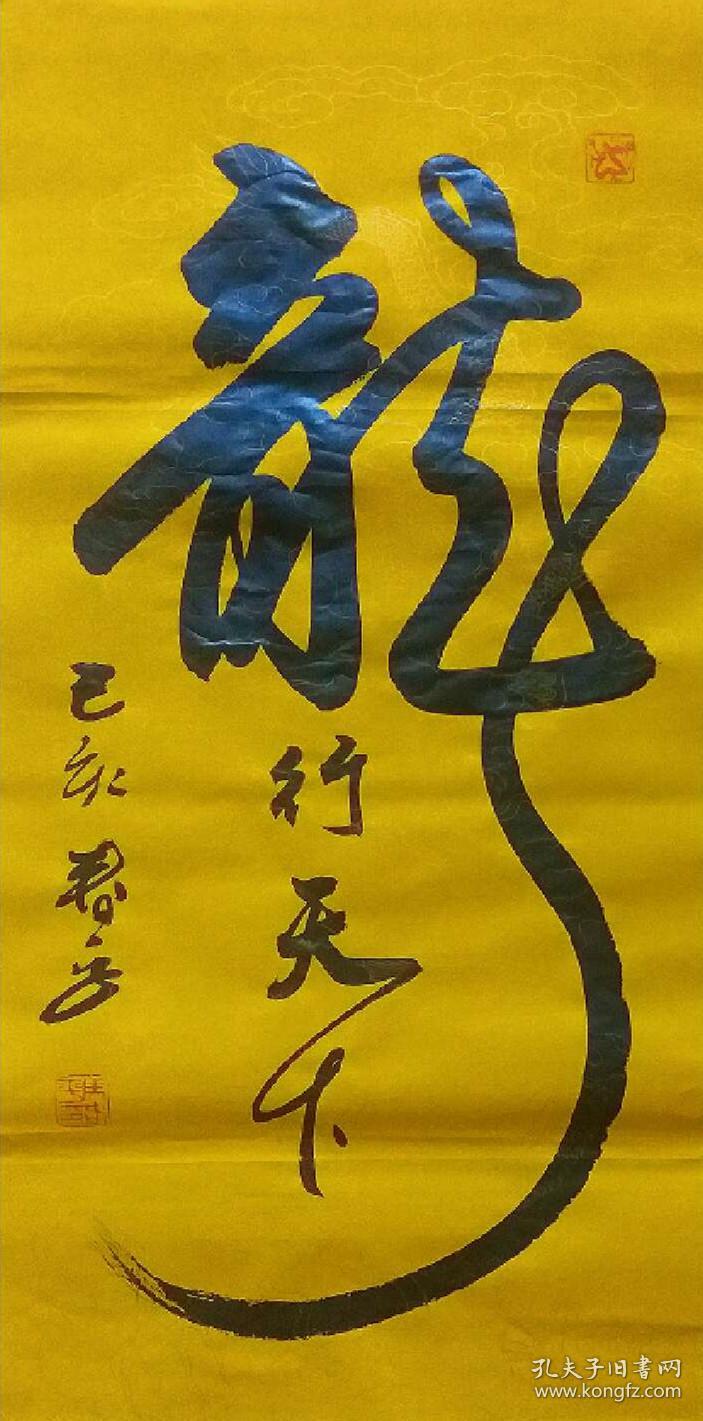 龍
行天下
己亥春
孔夫子旧书网
www.kongfz.com